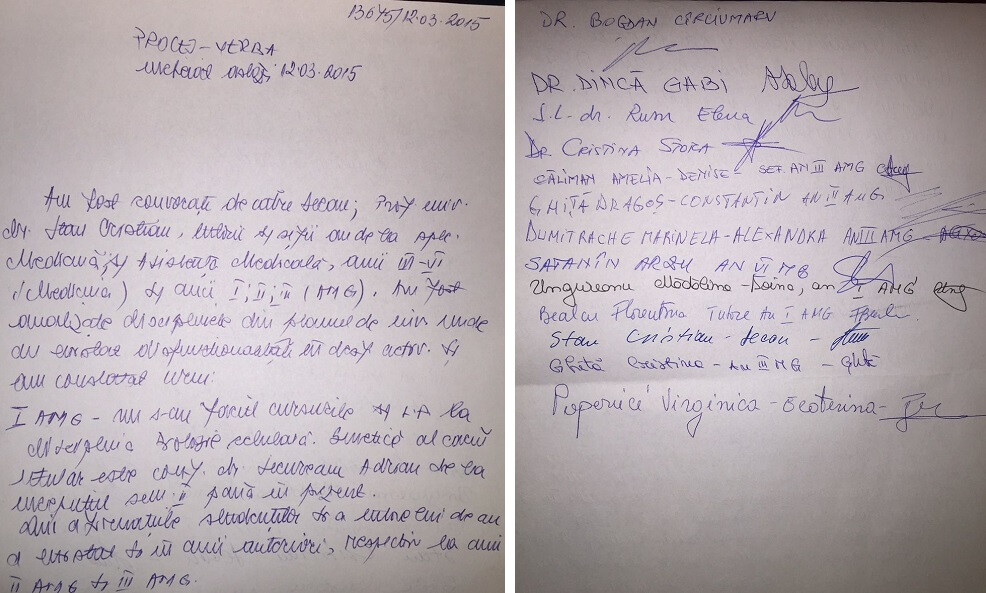 13675/12.03.2015
PROCES-VERBA
încheiat astăzi 12.03.2015
Am fost convocați de către Decan, Prof univ.
dr. Stan Cristian, tutorii și șefii de la spec.
Medicină, și Asistență Medicală, anii III-VI
(Medicină) și anii I, II, III (AMG). Au fost
analizate disciplinele din planul de unde
au existat disfuncționalități în desf. activ. și
am constatat
I AMG - nu s-au făcut cursurile și LP la
disciplina Biologie celulară. Genetică al cărui
titular este conf. dr. Adrian de la
începutul sem. II până în prezent.
Din afirmațiile studenților și a de an
a existat și în anii anteriori, respectiv la anii
II AMG și III AMG.
DR. BOGDAN CÂRCIUMARU
DR. DINCĂ GABI
Ș.L. dr. Rusu Elena
DR. CRISTINA STOICA
CĂLIMAN AMELIA-DENISE - ȘEF AN III AMG
GHIȚĂ DRAGOȘ-CONSTANTIN AN II AMG
DUMITRACHE MARINELA-ALEXANDRA AN III AMG
AN VI MG
Ungureanu Mădălina-Doina, an I AMG
Florentina Tutore An I AMG
Stan Cristian - Decan -
Ghiță Cristina - AN III MG - Ghiță
Virginica-Ecaterina-